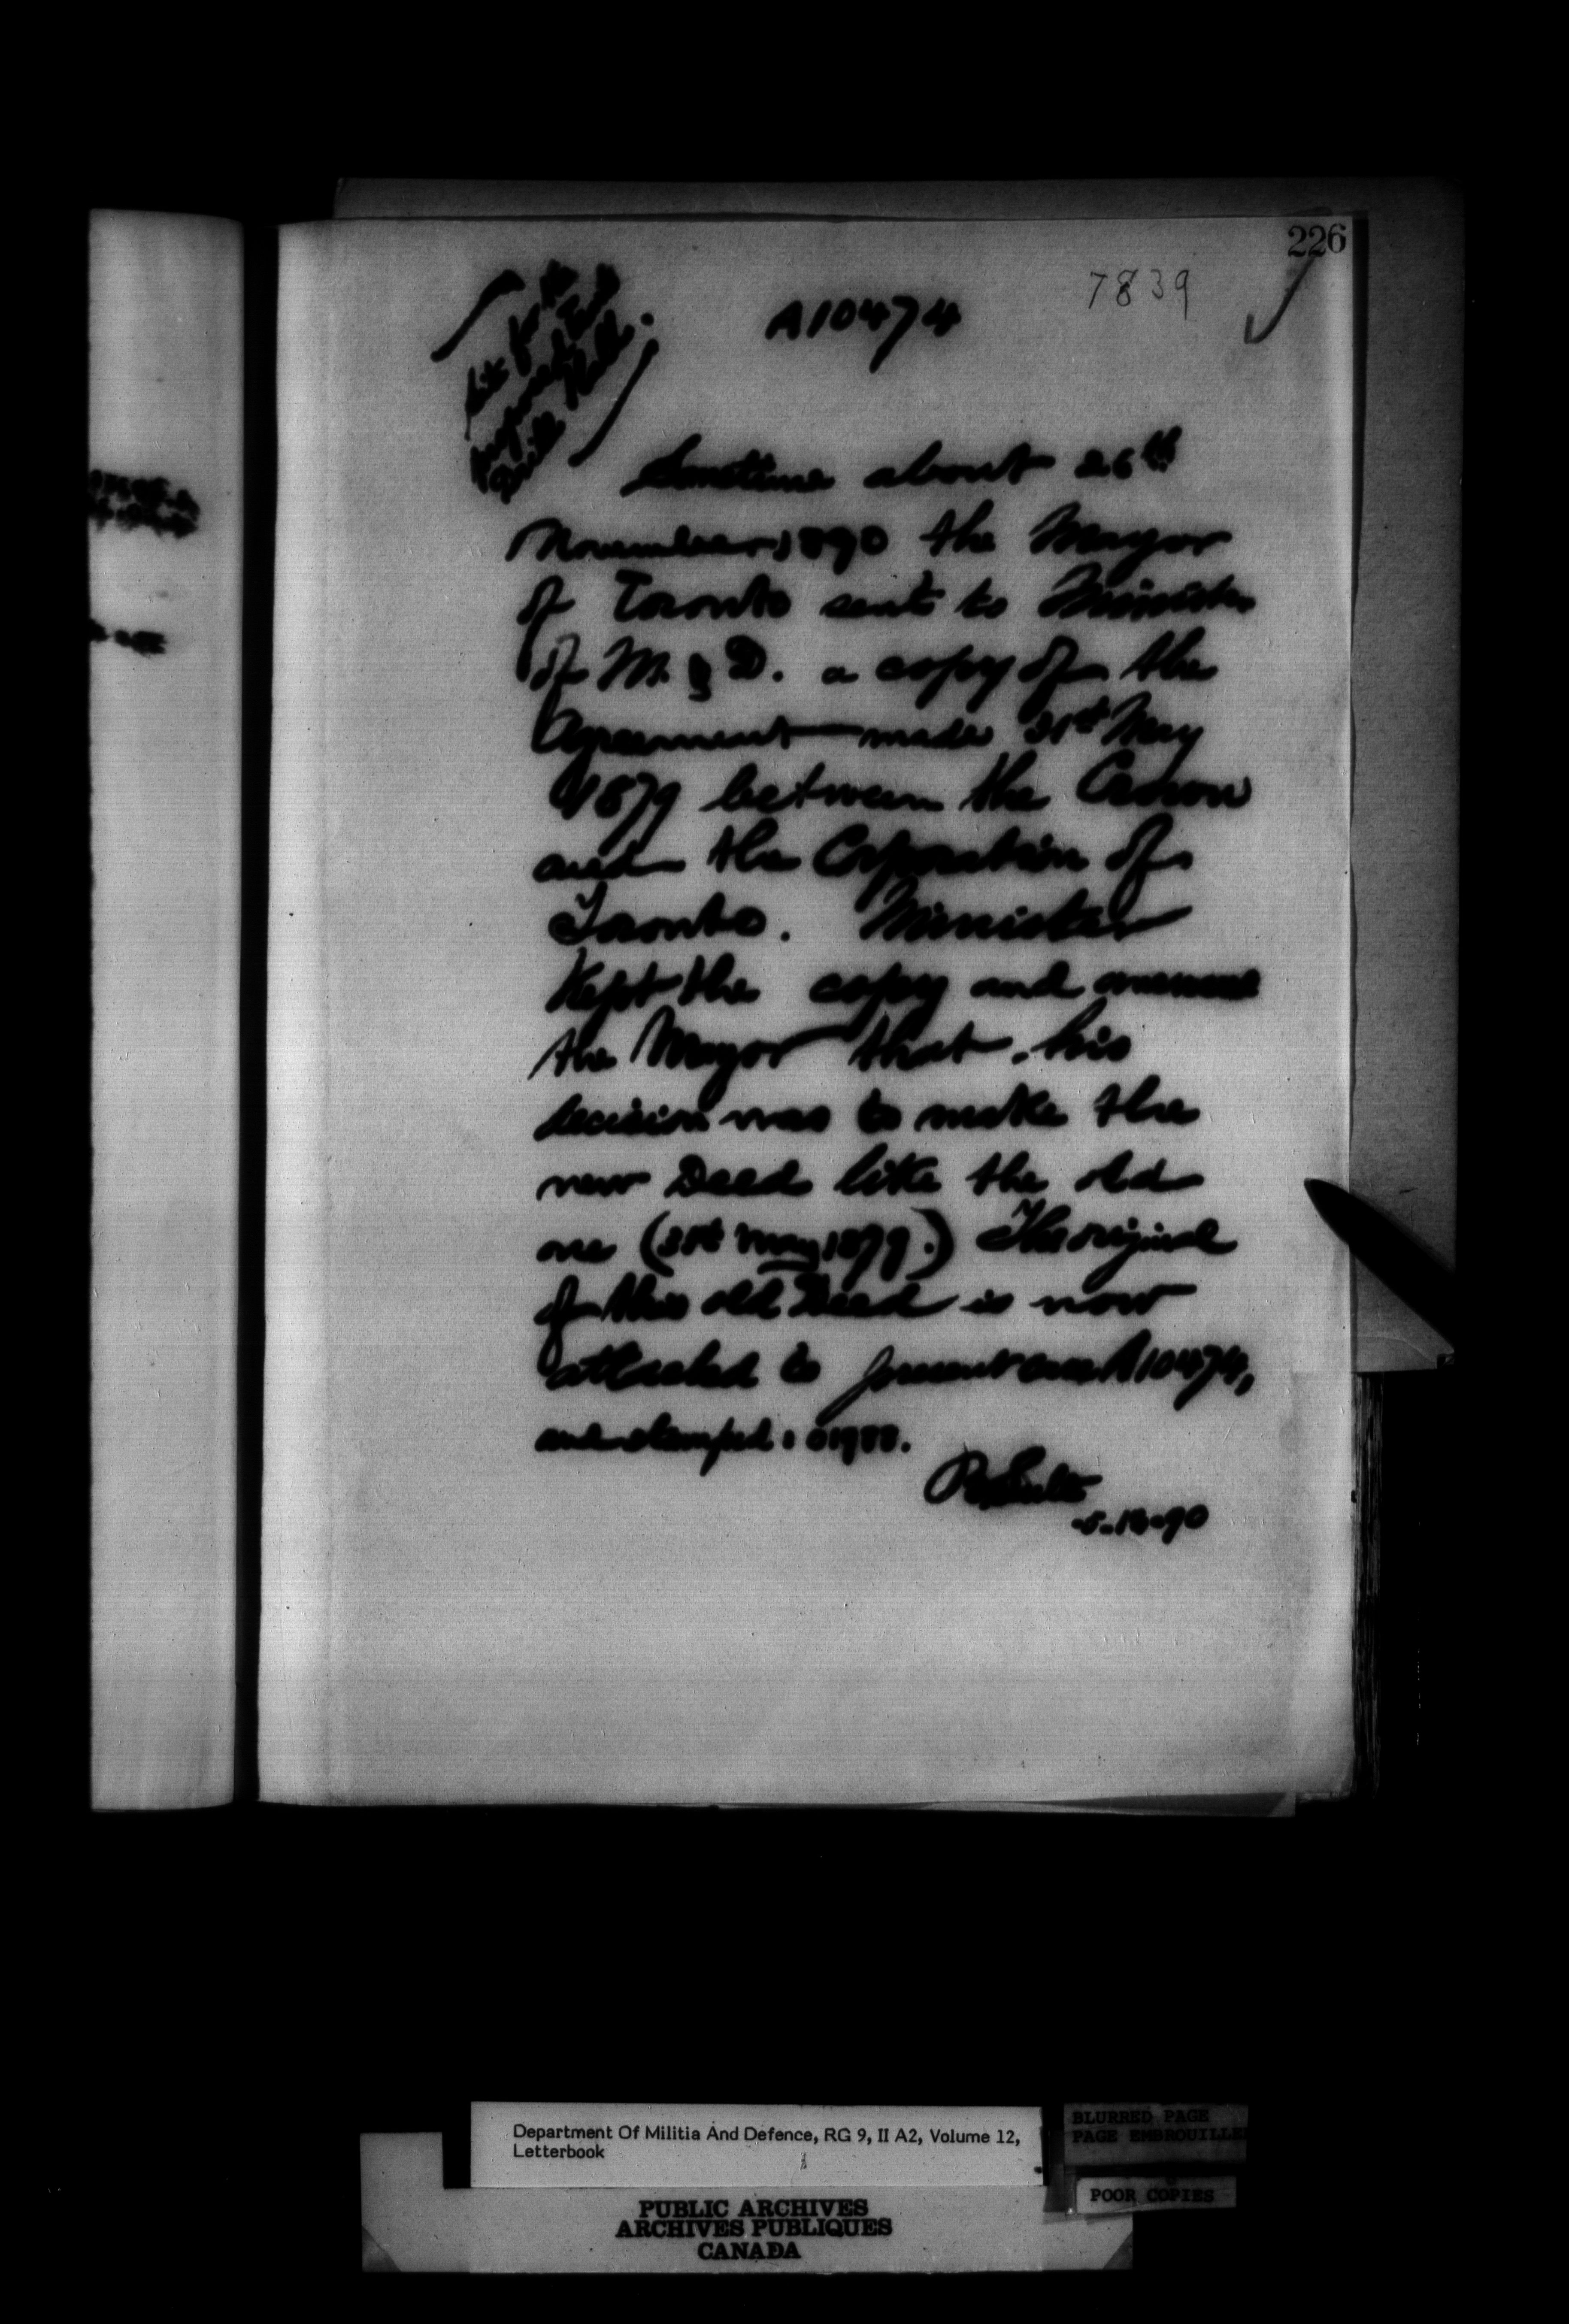 226
7839
A10474
Sometime about 26th
November 1890 the Mayor
of Toronto sent to Minister
of M. & D. a copy of the
Agreement made 31st May
1879 between the Crown
and the Corporation of
Toronto. Minister
Kept the copy and
the Mayor that his
decision was to make the
new Deed like the old
one (31st May 1879.) The original
of this old Deed is now
attached to present case A10474,
and stamped : 01988.
-90
Department Of Militia And Defence, RG 9, II A2, Volume 12,
Letterbook
BLURRED PAGE
PAGE EMBROUILLE
POOR COPIES
PUBLIC ARCHIVES
ARCHIVES PUBLIQUES
CANADA